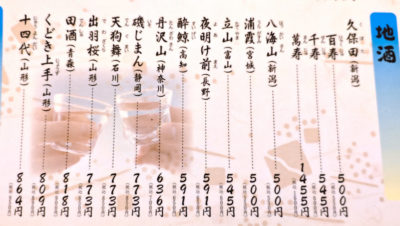 地酒
久保田(新潟)
百寿 500円
千寿 545円
萬寿 1455円
八海山(新潟) 500円
浦霞(宮城) 500円
立山(富山) 545円
夜明け前(長野) 591円
酔鯨(高知) 591円
丹沢山(神奈川) 636円
磯じまん(静岡) 773円
天狗舞(石川) 773円
出羽桜(山形) 773円
田酒(青森) 818円
くどき上手(山形) 809円
十四代(山形) 864円